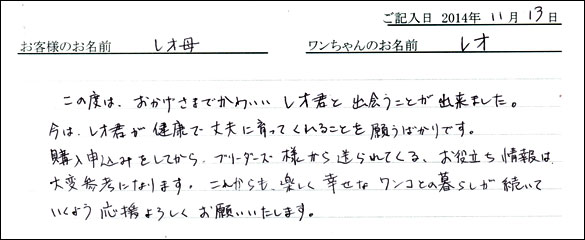 ご記入日 2014年 11月 13日
お客様のお名前 レオ母 ワンちゃんのお名前 レオ
この度は、おかげさまでかわいい レオ君と 出会うことが出来ました。
今は、レオ君が 健康で 丈夫に育ってくれることを 願うばかりです。
購入申込みをしてから、ブリーダーズ 様から送られてくる、お役立ち情報は
大変参考になります。これからも、楽しく 幸せな ワンコとの暮らしが 続いて
いくよう 応援よろしく お願いいたします。